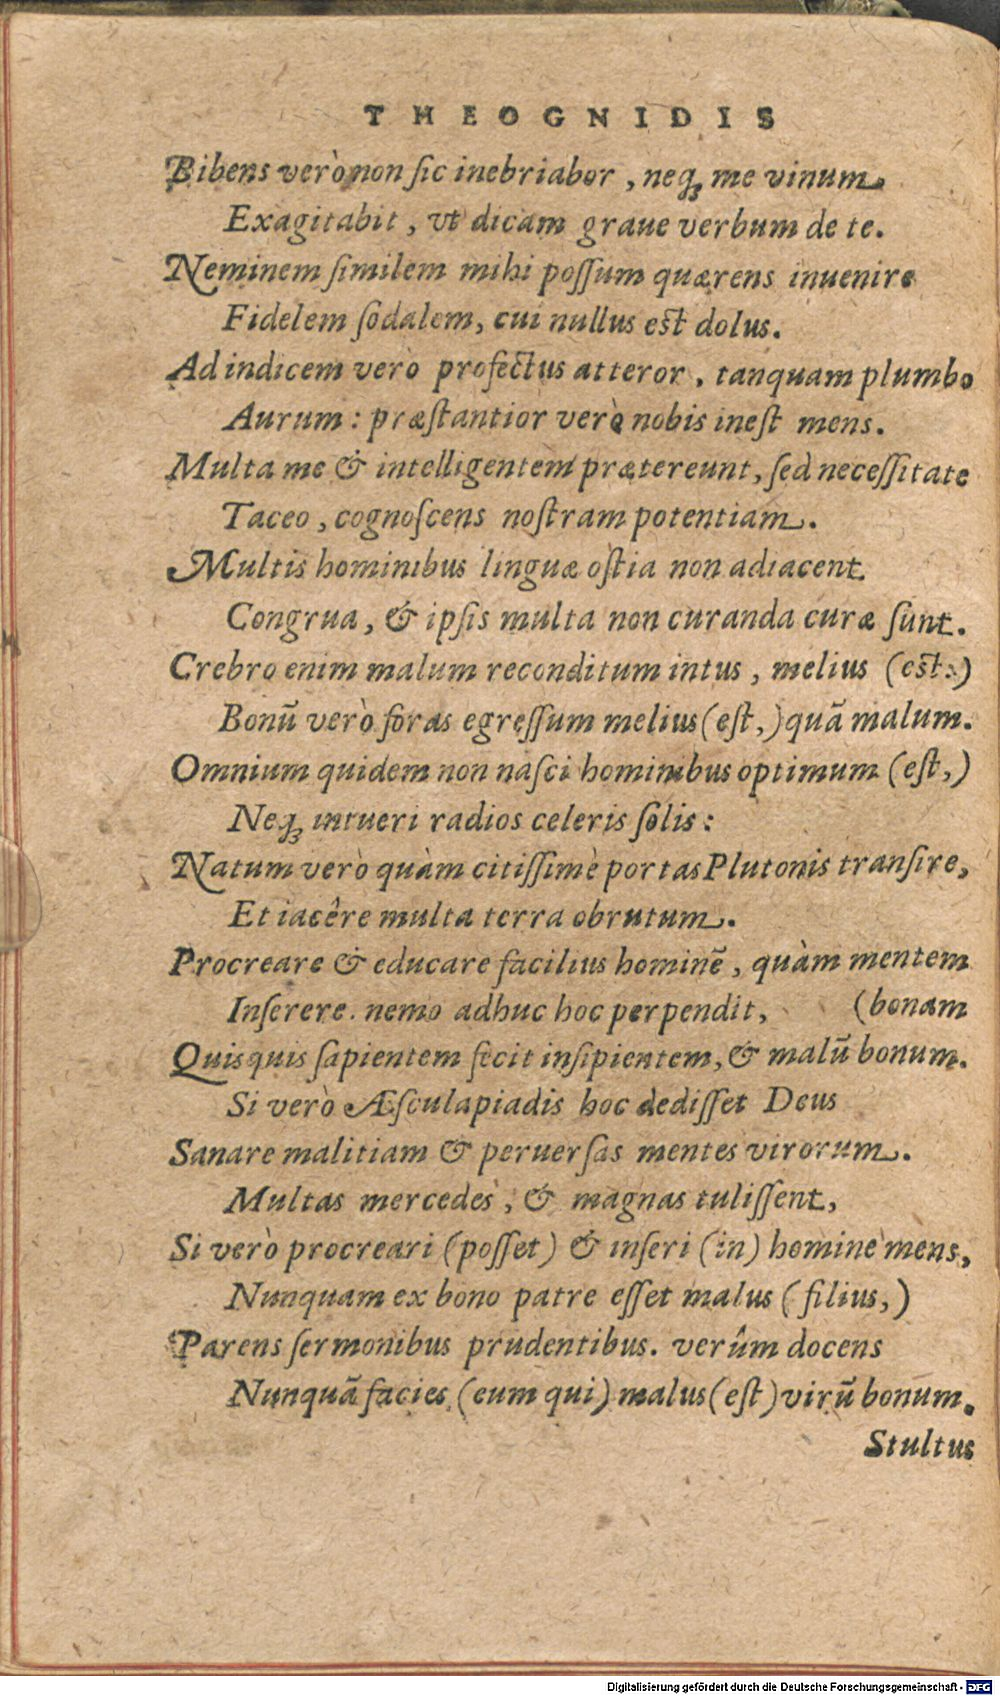 THEOGNIDIS
Bibens verò non ſic inebriabor, neq; me vinum
Exagitabit, vt dicam graue verbum de te.
Neminem ſimilem mihi poſſum quærens inuenire
Fidelem ſodalem, cui nullus est dolus.
Ad indicem verò profectus atteror, tanquam plumbo
Aurum: præſtantior verò nobis ineſt mens.
Multa me & intelligentem prætereunt, ſed neceſſitate
Taceo, cognoſcens noſtram potentiam.
Multis hominibus linguæ oſtia non adiacent
Congrua, & ipſis multa non curanda curæ ſunt.
Crebro enim malum reconditum intus, melius (est:)
Bonū verò foras egreſſum melius (eſt,) quā malum.
Omnium quidem non naſci hominibus optimum (eſt,)
Neq; intueri radios celeris ſolis:
Natum verò quàm citiſſimè portas Plutonis tranſire,
Et iacêre multa terra obrutum.
Procreare & educare facilius hominē, quàm mentem
Inſerere. nemo adhuc hoc perpendit, (bonam
Quisquis ſapientem fecit inſipientem, & malū bonum.
Si verò Æſculapiadis hoc dediſſet Deus
Sanare malitiam & peruerſas mentes virorum.
Multas mercedes, & magnas tuliſſent,
Si verò procreari (poſſet) & inſeri (in) homine mens,
Nunquam ex bono patre eſſet malus (filius,)
Parens ſermonibus prudentibus. verûm docens
Nunquā facies (eum qui) malus (eſt) virū bonum.
Stultus
Digitalisierung gefördert durch die Deutsche Forschungsgemeinschaft - DFG